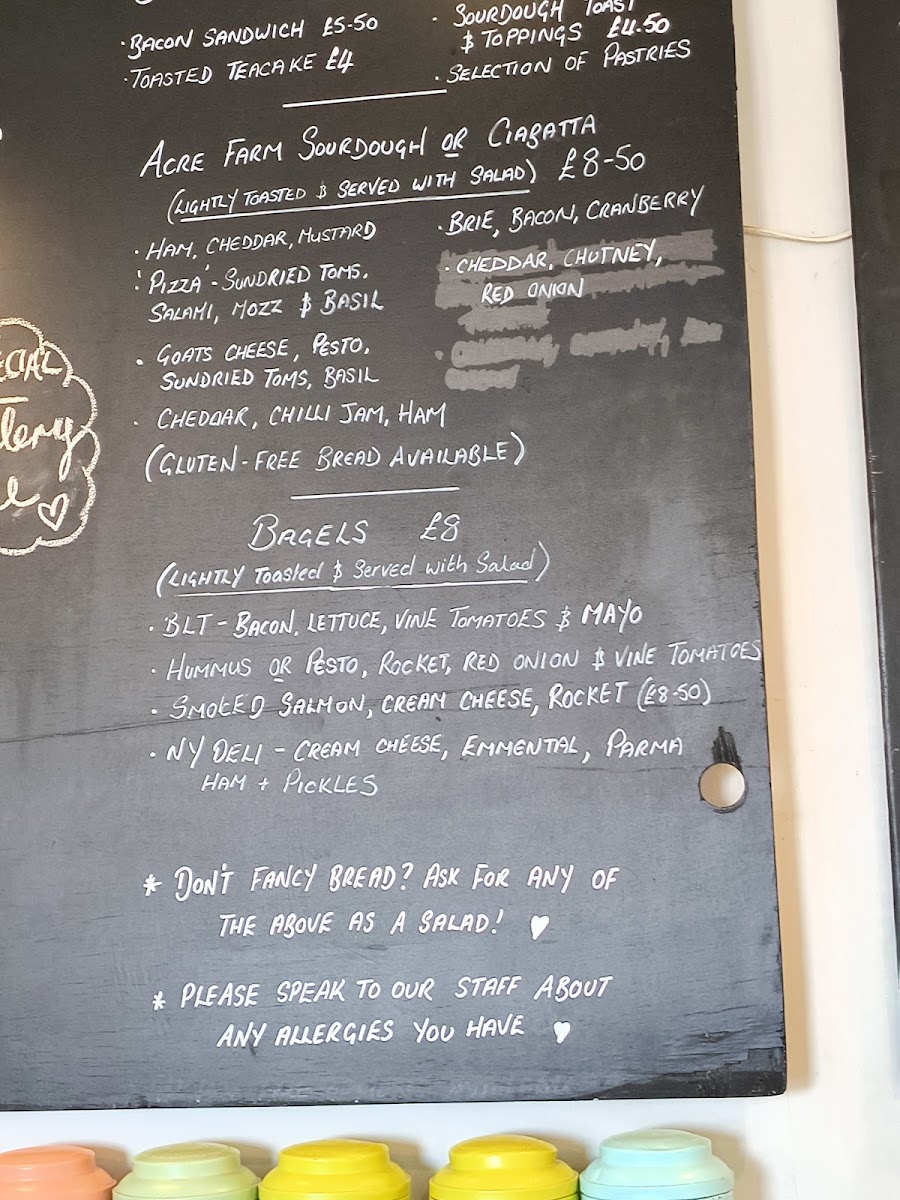 · BACON SANDWICH £5-50
· TOASTED TEACAKE £4
· SOURDOUGH TOAST
$ TOPPINGS £4.50
· SELECTION OF PASTRIES
ACRE FARM SOURDOUGH OR CIABATTA
(LIGHTLY TOASTED $ SERVED WITH SALAD) £8-50
· HAM, CHEDDAR, MUSTARD
· 'PIZZA' - SUNDRIED TOMS,
SALAMI, MOZZ $ BASIL
· GOATS CHEESE, PESTO,
SUNDRIED TOMS, BASIL
· CHEDDAR, CHILLI JAM, HAM
(GLUTEN-FREE BREAD AVAILABLE)
· BRIE, BACON, CRANBERRY
· CHEDDAR, CHUTNEY,
RED ONION
BAGELS £8
(LIGHTLY Toasted $ Served with Salad)
· BLT - BACON, LETTUCE, VINE TOMATOES $ MAYO
· HUMMUS OR PESTO, ROCKET, RED ONION $ VINE TOMATOES
· SMOKED SALMON, CREAM CHEESE, ROCKET (£8-50)
· NY DELI - CREAM CHEESE, EMMENTAL, PARMA
HAM + PICKLES
* DON'T FANCY BREAD? ASK FOR ANY OF
THE ABOVE AS A SALAD! ♥
* PLEASE SPEAK TO OUR STAFF ABOUT
ANY ALLERGIES YOU HAVE ♥